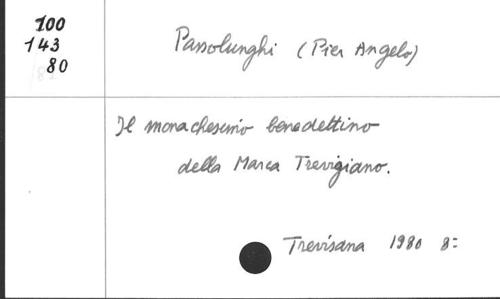 100
143
80
Passolunghi (Pier Angelo)
Il monachesimo benedettino
della Marca Trevigiano.
Trevisana 1980 8=